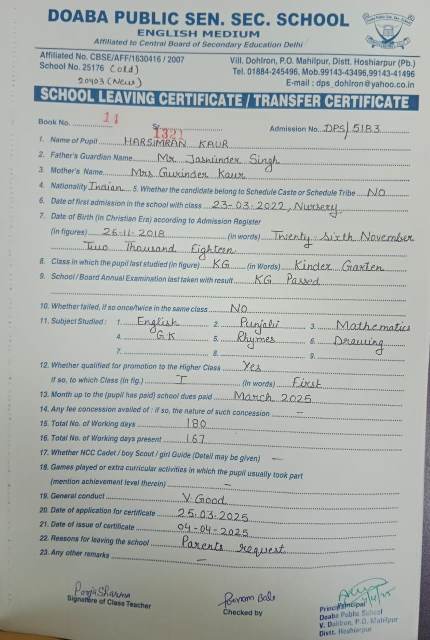 DOABA PUBLIC SEN. SEC. SCHOOL
ENGLISH MEDIUM
Affiliated to Central Board of Secondary Education Delhi
Affiliated No. CBSE/AFF/1630416 / 2007
School No. 25176 (old)
20403 (New)
Vill. Dohlron, P.O. Mahilpur, Distt. Hoshiarpur (Pb.)
Tel. 01884-245496, Mob.99143-43496,99143-41496
E-mail : dps_dohlron@yahoo.co.in
SCHOOL LEAVING CERTIFICATE / TRANSFER CERTIFICATE
Book No. 14 Sr. 1321 Admission No. DPS/5183
1. Name of Pupil HARSIMRAN KAUR
2. Father's Guardian Name Mr. Jasminder Singh
3. Mother's Name Mrs Gurinder Kaur
4. Nationality Indian 5. Whether the candidate belong to Schedule Caste or Schedule Tribe NO
6. Date of first admission in the school with class 23-03-2022, Nursery
7. Date of Birth (in Christian Era) according to Admission Register
(in figures) 26-11-2018 (in words) Twenty Sixth November
Two Thousand Eighteen
8. Class in which the pupil last studied (in figure) KG (in Words) Kinder Garten
9. School / Board Annual Examination last taken with result KG Passed
10. Whether failed, if so once/twice in the same class NO
11. Subject Studied : 1. English 2. Punjabi 3. Mathematics
4. GK 5. Rhymes 6. Drawing
7. 8. 9.
12. Whether qualified for promotion to the Higher Class Yes
If so, to which Class (in fig.) I (in words) First
13. Month up to the (pupil has paid) school dues paid March 2025
14. Any fee concession availed of : if so, the nature of such concession –
15. Total No. of Working days 180
16. Total No. of Working days present 167
17. Whether NCC Cadet / boy Scout / girl Guide (Detail may be given) –
18. Games played or extra curricular activities in which the pupil usually took part
(mention achievement level therein) –
19. General conduct V. Good
20. Date of application for certificate 25-03-2025
21. Date of issue of certificate 04-04-2025
22. Reasons for leaving the school Parents request
23. Any other remarks –
Pooja Sharma
Signature of Class Teacher
Poonam Bala
Checked by
Principal
Principal
Doaba Public School
V. Dohlron, P.O. Mahilpur
Distt. Hoshiarpur